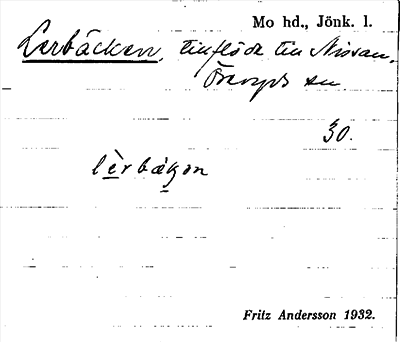 Mo hd., Jönk. l.
Lerbäcken, tillflöde till Nissan,
Öreryds sn
30.
lèrbäkən
Fritz Andersson 1932.